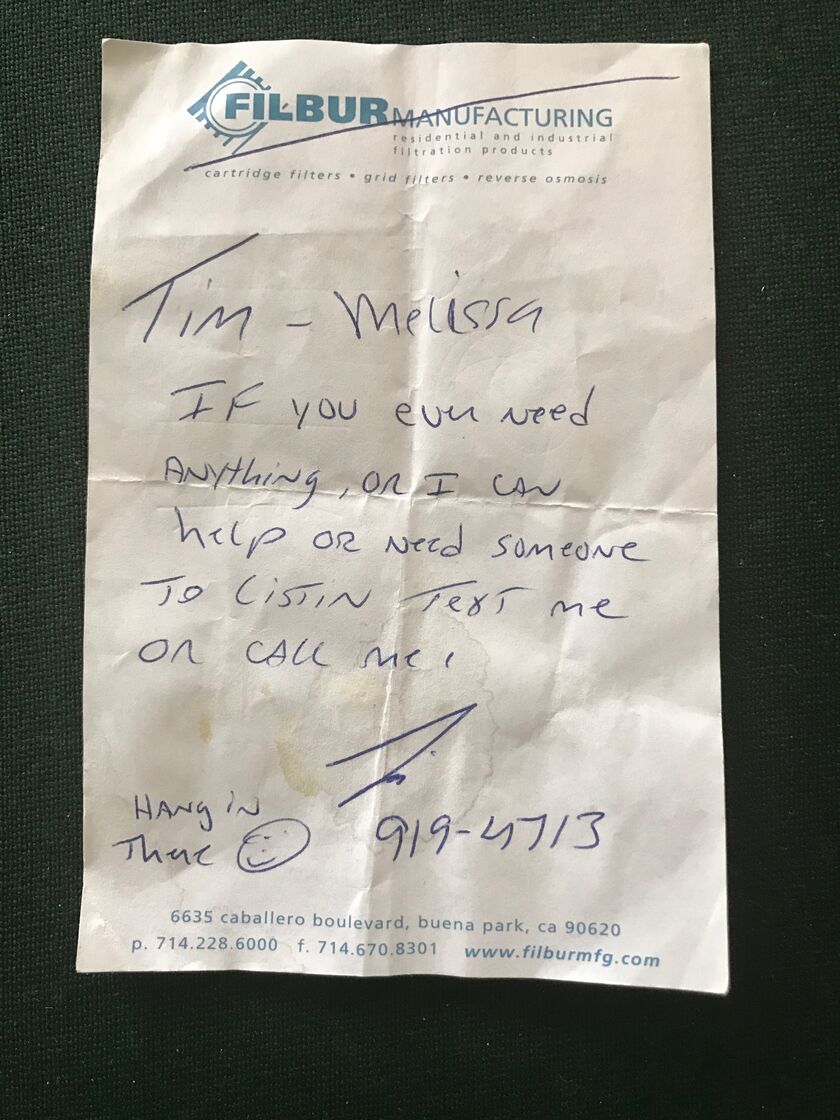 FILBUR MANUFACTURING
residential and industrial
filtration products
cartridge filters • grid filters • reverse osmosis
Tim - Melissa
IF YOU ever Need
ANYthing, OR I CAN
help OR Need SOMEONE
TO LISTIN TEXT me
OR CALL me!
HANG IN
There
919-4713
6635 caballero boulevard, buena park, ca 90620
p. 714.228.6000 f. 714.670.8301 www.filburmfg.com